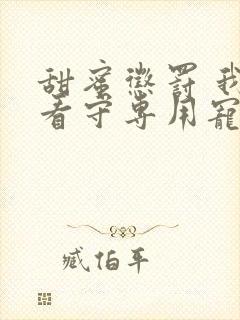 甜蜜懲罰 我
看守專用寵
臧伯平